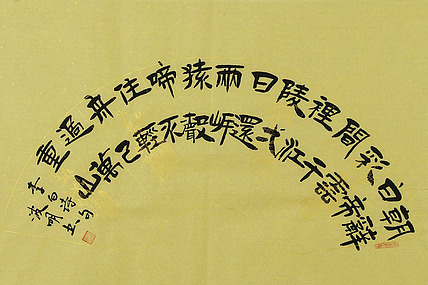 朝辭
白帝
彩雲
間千
裡江
陵弌
日還
兩岸
猿聲
啼不
住輕
舟已
過萬
重山
李白诗句
明书